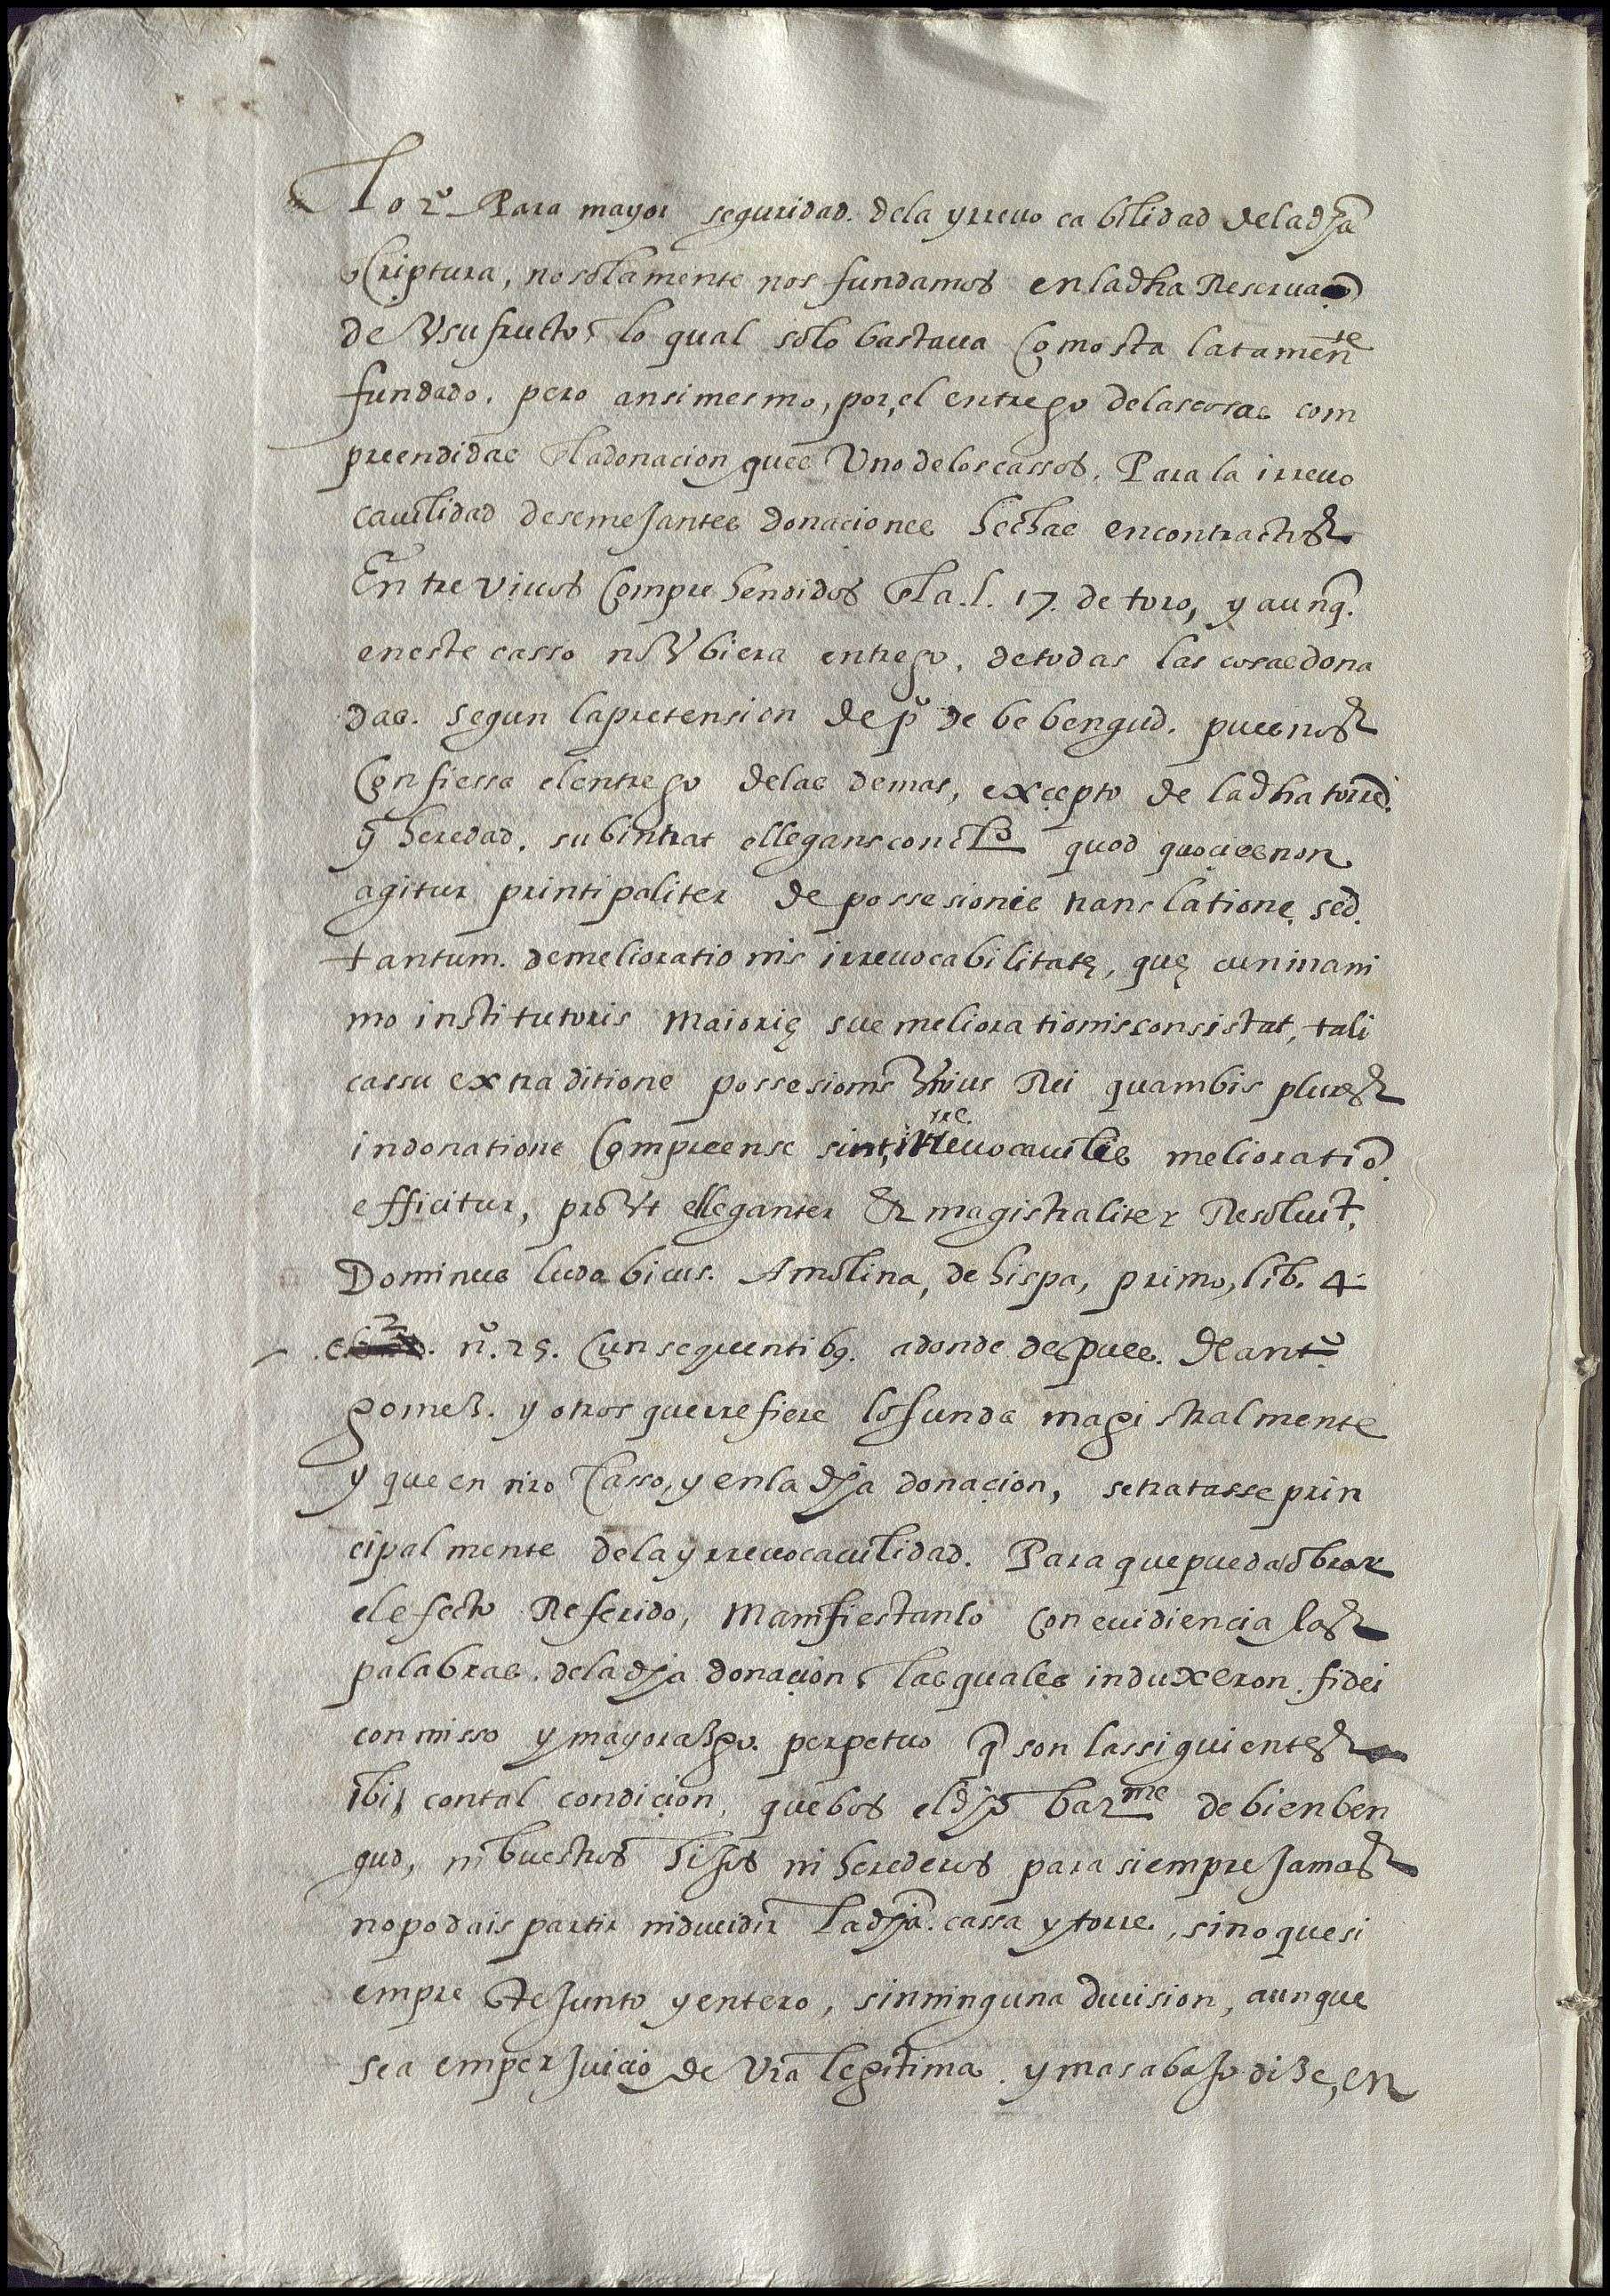 Lo 2º Para mayor seguridad. dela yrreuo ca bilidad deladha
scriptura, no solamente nos fundamos enladha Reseruaon
de Vsufructo, lo qual solo bastaua Como sta latamente
fundado. pero ansimesmo, por el entrego delas cosas com
preendidas Pla donacion ques Vno delos cassos. Para la irreuo
cauilidad desemejantes donaciones hechas en contractos
Entre viuos Comprehendidos Pla. l. 17. de toro, y aunq.
eneste casso no Vbiera entrego. detodas las cosas dona
das. segun la pretension de pº de be bengud. pues nos
Confiessa el entrego delas demas, excepto de ladha torre.
q heredad. subintrat ellegans conclo quod quocies non
agitur printipaliter de possesionis translatione, sed.
tantum. demelioratio nis irreuocabilitate, que cum in ani
mo institutoris Maiorie sue meliorationis consistat, tali
cassu ex traditione possesionis Vnius Rei quambis plures
indonatione Compreense sint, irreuocauilis melioratio.
efficitur, pro Vt elleganter Et magistraliter Resoluit,
Dominus ludobicus. Amolina, de hispa, primo, lib. 4.
nº. 25. Cunsequentibꝯ. adonde despues. de antº.
gomez. y otros que rrefiere lo funda magistralmente
y que en nro Casso, y enla dha donacion, setratasse prin
cipalmente dela yrreuocauilidad. Para que pueda obrar
el efecto Referido, Manifiestanlo Con euidiencia las
palabras. dela dha donacion, las quales induxeron. fidei
conmisso y mayorazgo. perpetuo q son las siguientes
ibi, contal condicion, quebos eldho barme de bienben
gud, ni buestros hijos ni herederos para siempre Jamas
no podais partir ni diuidir ladha. cassa y torre, sino quesi
empre este Junto y entero, sin ninguna diuision, aunque
sea emperJuicio de Vra legitima. y mas abajo dize, en